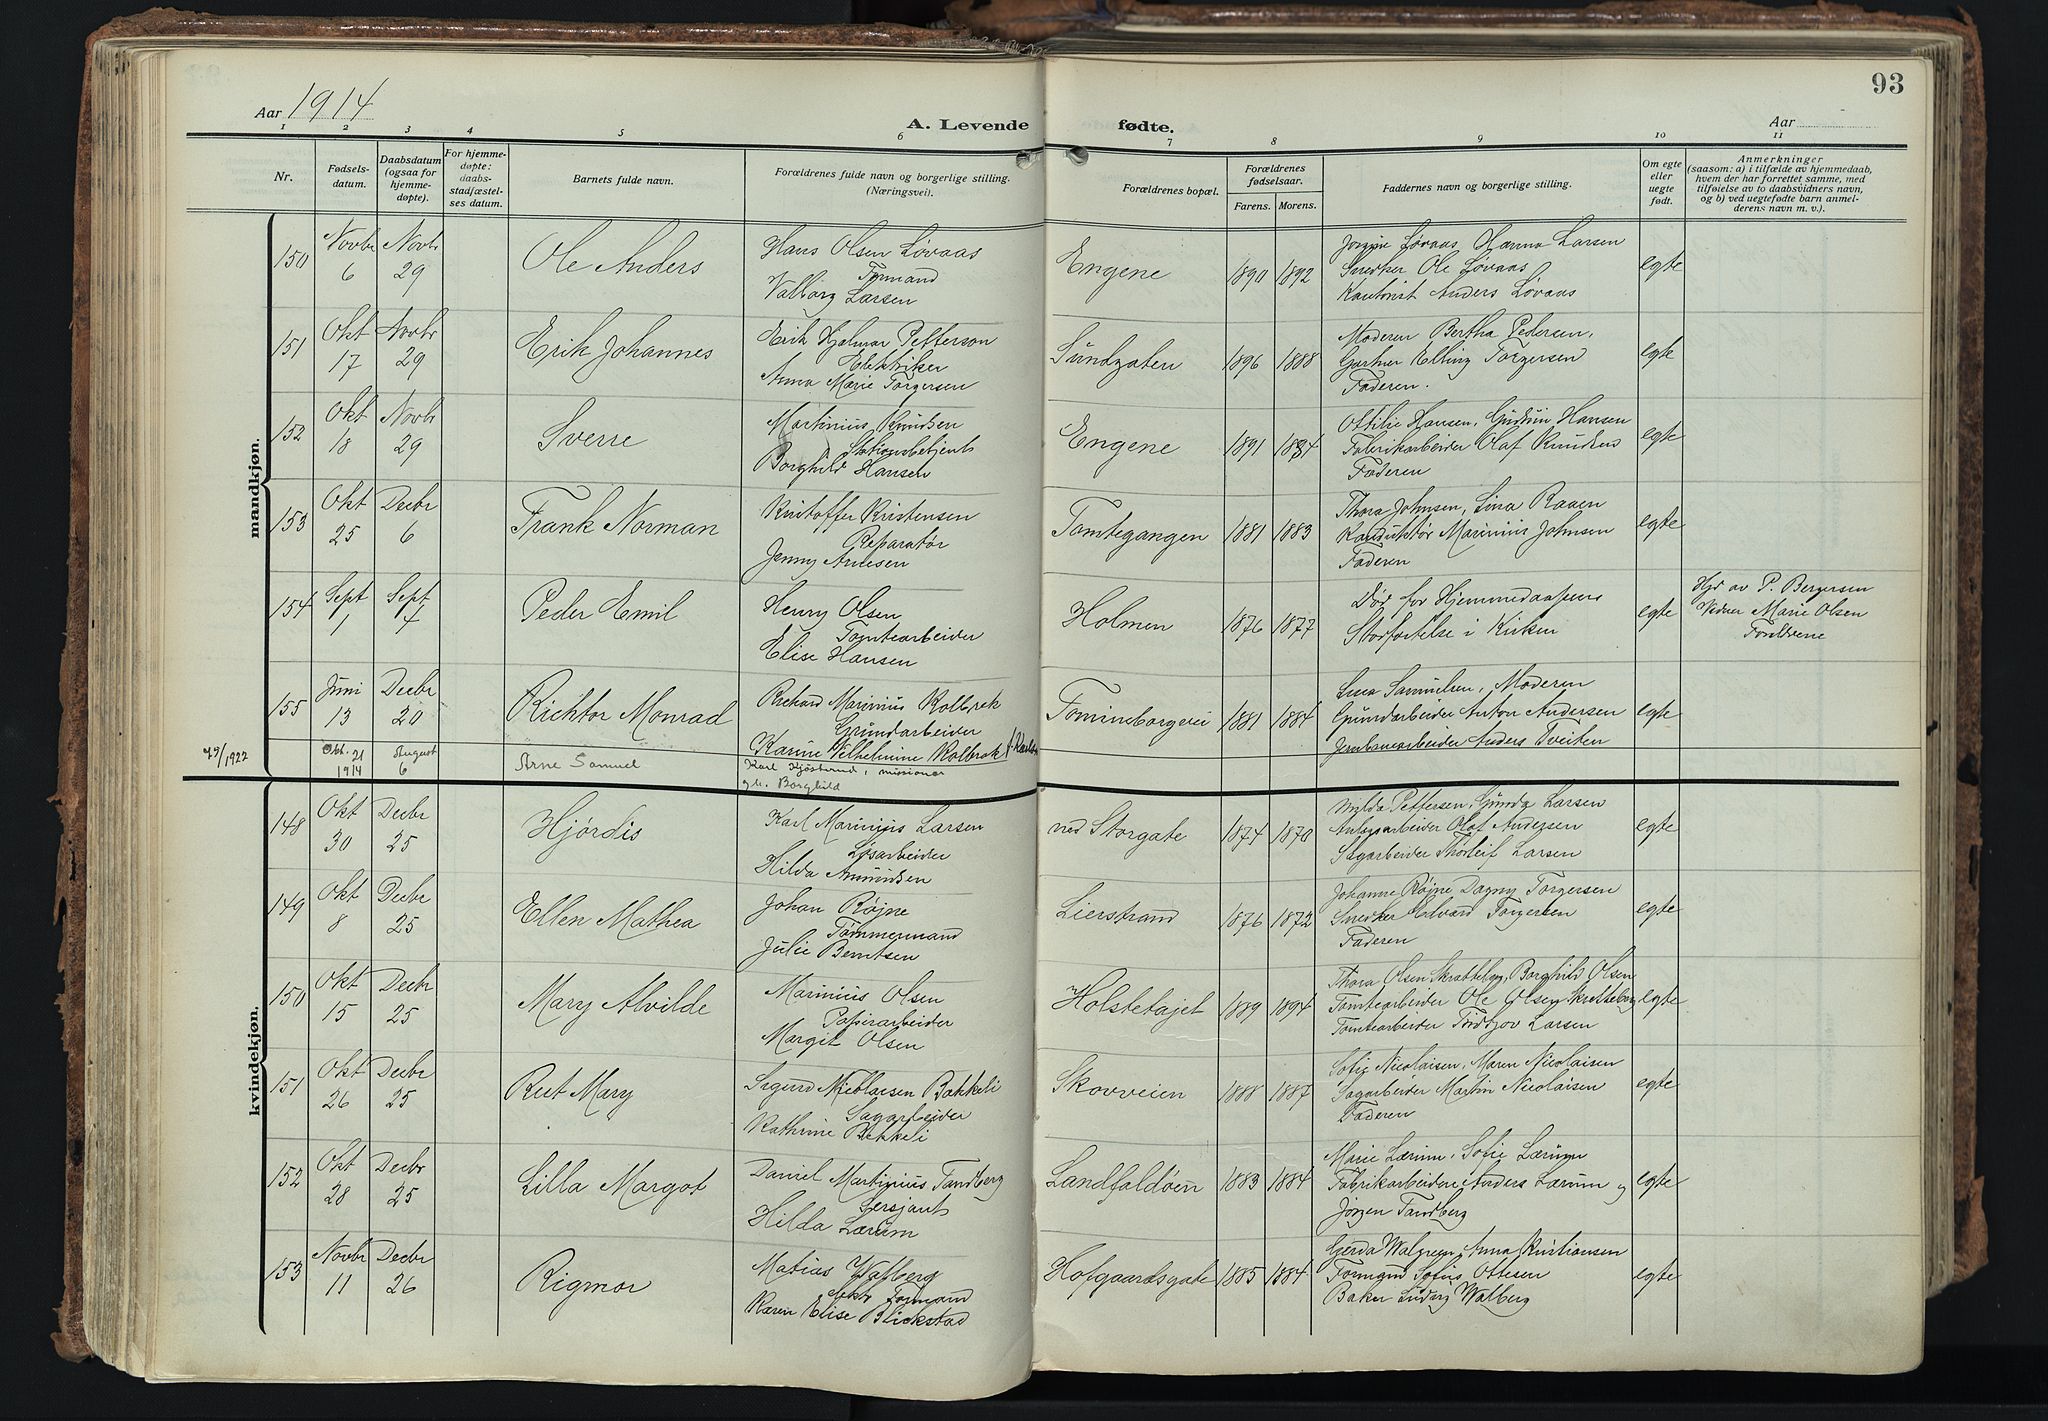 93
Aar 1914
A. Levende fødte.
Aar
1 2 3 4 5 6 7 8 9 10 11
Nr.
Fødsels-
datum.
Daabsdatum
(ogsaa for
hjemme-
døpte).
For hjemme-
døpte:
daabs-
stadfæstel-
ses datum.
Barnets fulde navn.
Forældrenes fulde navn og borgerlige stilling.
(Næringsvei).
Forældrenes bopæl.
Forældrenes
fødselsaar.
Farens. Morens.
Faddernes navn og borgerlige stilling.
Om egte
eller
uegte
født.
Anmerkninger
(saasom: a) i tilfælde av hjemmedaab,
hvem der har forrettet samme, med
tilføielse av to daabsvidners navn,
og b) ved uegtefødte barn anmel-
derens navn m. v.).
mandkjøn.
150
Novbr
6
Novbr
29
Ole Anders
Hans Olsen Løvaas
Formand
Valborg Larsen
Engene
1890 1892
Løvaas Hanna Larsen
Snedker Ole Løvaas
Kontorist Anders Løvaas
egte
151
Okt
17
Novbr
29
Erik Johannes
Erik Hjalmar Petterson
Elektriker
Anna Marie Torgersen
Sundgaten
1896 1888
Moderen Bertha Pedersen,
Gartner Elling Torgersen
Faderen.
egte
152
Okt
18
Novbr
29
Sverre
Martinius Knudsen
Stationsbetjent
Borghild Hansen
Engene
1891
Ottilie Hansen, Gudrun Hansen
Fabrikarbeider Olaf Knudsen
Faderen
egte
153
Okt
25
Decbr
6
Frank Norman
Kristoffer Kristensen
Reparatør
Jenny
Tomtegangen
1881 1883
Thora Johnsen, Lina Raaen
Konduktør Marinius Johnsen
Faderen
egte
154
Sept
1
Sept
4
Peder Emil
Henry Olsen
Tomtearbeider
Elise Hansen
Holmen
1876 1877
Død før Hjemmedaapens
i Kirken
egte
Hjd av P. Bergersen
Vidner Marie Olsen
155
Juni
13
Decbr
20
Richtor Monrad
Richard Marinius Kolbræk
Grundarbeider
Karine Vilhelmine Kolbræk f.
1881 1884
Lina Samuelsen, Moderen
Grundarbeider Anton Andersen
Jernbanearbeider Anders Tveiten
egte
/1922
Okt. 21
1914
August
6
Arne Samuel
Karl Kjøstrud, missionær
g.m. Borghild
kvindekjøn.
148
Okt
30
Decbr
25
Hjørdis
Karl Marinius Larsen
Løsarbeider
Hilda Amundsen
ned Storgate
1874 1870
Pettersen, Gunda Larsen
Olaf Andersen
Sagarbeider Thorleif Larsen
egte
149
Okt
8
Decbr
25
Ellen Mathea
Johan Røjne
Tømmermand
Julie Berntsen
Lierstrand
1876 1872
Johanne Røjne Dagny Torgersen
Snedker Halvard Torgersen
Faderen
egte
150
Okt
15
Decbr
25
Mary Alvilde
Marinius Olsen
Papirarbeider
Margit Olsen
1889 1894
Thora Olsen Skrætteberg, Borghild Olsen
Tomtearbeider Ole Olsen Skretteberg
Tomtearbeider Fridtjov Larsen
egte
151
Okt
26
Decbr
25
Rut Mary
Sigurd Nicolaisen Bakkeli
Sagarbeider
Kathrine Bakkeli
Skovveien
1888 1887
Sofie Nicolaisen, Maren Nicolaisen
Sagarbeider Martin Nicolaisen
Faderen
egte
152
Okt
28
Decbr
25
Lilla Margot
Daniel Martinius Tandberg
Sersjant
Hilda Lærum
Landfaldøen
1883 1884
Marie Lærum, Sofie Lærum
Fabrikarbeidere Anders Lærum og
Jørgen Tandberg
egte
153
Novbr
11
Decbr
26
Rigmor
Matias Walberg
Formand
Karen Elise Blickstad
Hofgaardsgate
1885 1884
Gerda Walgreen, Anna Kristiansen
Formand Sofus Ottesen
Baker Ludvig Walberg
egte